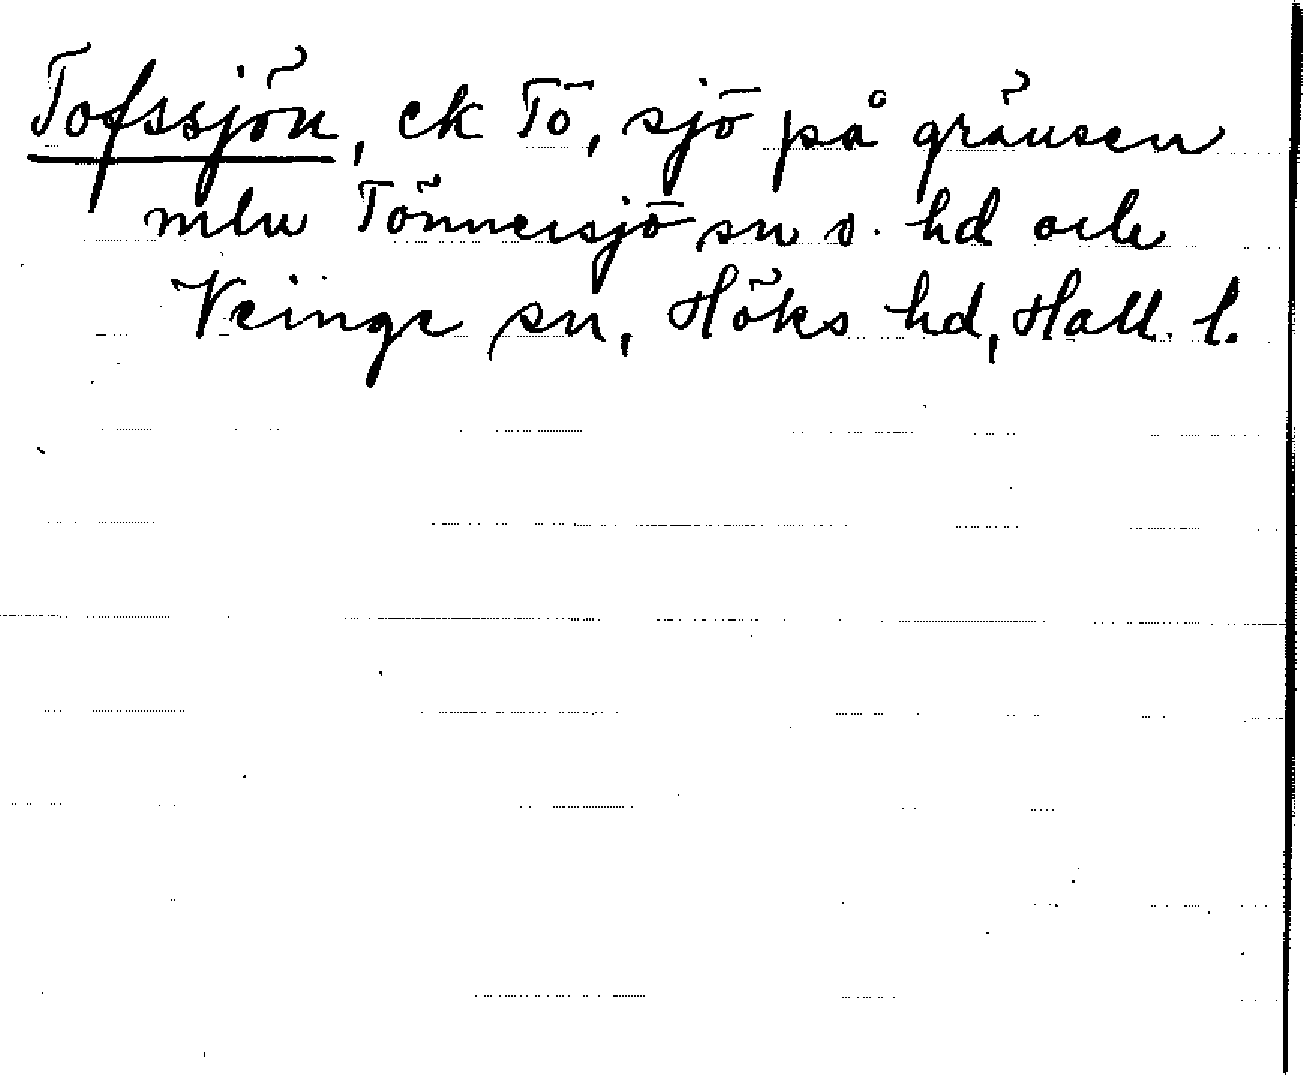 Tofssjön, ek Tö, sjö på gränsen
mln Tönnersjö sn o. hd och
Veinge sn, Höks hd, Hall. l.